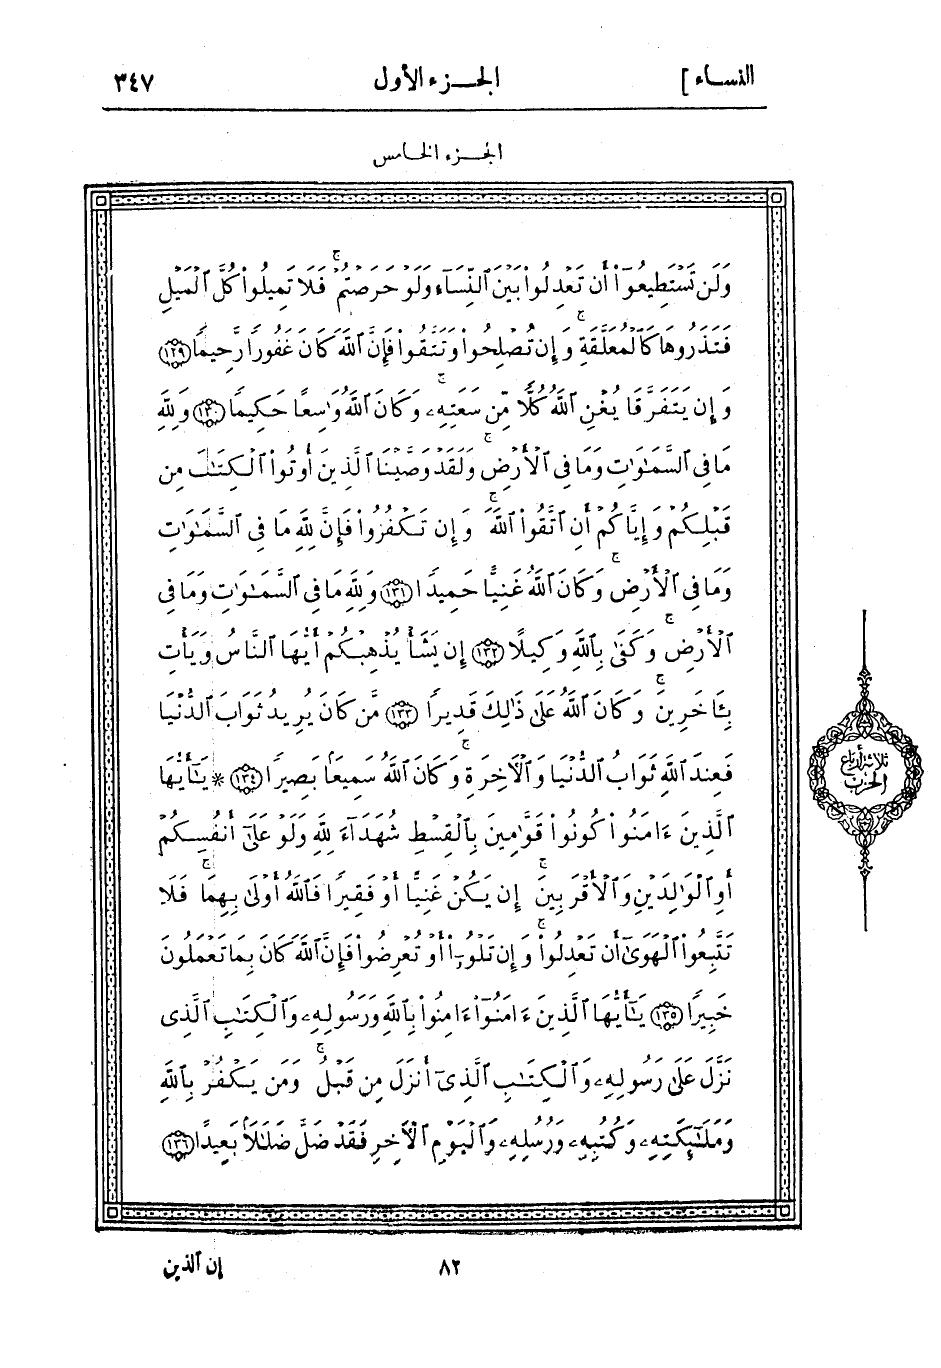 النساء ]
الجزء الأول
٣٤٧
الجزء الخامس
وَلَن تَسْتَطِيعُوٓا۟ أَن تَعْدِلُوا۟ بَيْنَ ٱلنِّسَآءِ وَلَوْ حَرَصْتُمْ ۖ فَلَا تَمِيلُوا۟ كُلَّ ٱلْمَيْلِ
فَتَذَرُوهَا كَٱلْمُعَلَّقَةِ ۚ وَإِن تُصْلِحُوا۟ وَتَتَّقُوا۟ فَإِنَّ ٱللَّهَ كَانَ غَفُورًا رَّحِيمًا (١٢٩)
وَإِن يَتَفَرَّقَا يُغْنِ ٱللَّهُ كُلًّا مِّن سَعَتِهِۦ ۚ وَكَانَ ٱللَّهُ وَٰسِعًا حَكِيمًا (١٣٠) وَلِلَّهِ
مَا فِى ٱلسَّمَٰوَٰتِ وَمَا فِى ٱلْأَرْضِ ۗ وَلَقَدْ وَصَّيْنَا ٱلَّذِينَ أُوتُوا۟ ٱلْكِتَٰبَ مِن
قَبْلِكُمْ وَإِيَّاكُمْ أَنِ ٱتَّقُوا۟ ٱللَّهَ ۚ وَإِن تَكْفُرُوا۟ فَإِنَّ لِلَّهِ مَا فِى ٱلسَّمَٰوَٰتِ
وَمَا فِى ٱلْأَرْضِ ۚ وَكَانَ ٱللَّهُ غَنِيًّا حَمِيدًا (١٣١) وَلِلَّهِ مَا فِى ٱلسَّمَٰوَٰتِ وَمَا فِى
ٱلْأَرْضِ ۚ وَكَفَىٰ بِٱللَّهِ وَكِيلًا (١٣٢) إِن يَشَأْ يُذْهِبْكُمْ أَيُّهَا ٱلنَّاسُ وَيَأْتِ
بِـَٔاخَرِينَ ۚ وَكَانَ ٱللَّهُ عَلَىٰ ذَٰلِكَ قَدِيرًا (١٣٣) مَّن كَانَ يُرِيدُ ثَوَابَ ٱلدُّنْيَا
فَعِندَ ٱللَّهِ ثَوَابُ ٱلدُّنْيَا وَٱلْءَاخِرَةِ ۚ وَكَانَ ٱللَّهُ سَمِيعًۢا بَصِيرًا (١٣٤) * يَٰٓأَيُّهَا
ٱلَّذِينَ ءَامَنُوا۟ كُونُوا۟ قَوَّٰمِينَ بِٱلْقِسْطِ شُهَدَآءَ لِلَّهِ وَلَوْ عَلَىٰٓ أَنفُسِكُمْ
أَوِ ٱلْوَٰلِدَيْنِ وَٱلْأَقْرَبِينَ ۚ إِن يَكُنْ غَنِيًّا أَوْ فَقِيرًا فَٱللَّهُ أَوْلَىٰ بِهِمَا ۖ فَلَا
تَتَّبِعُوا۟ ٱلْهَوَىٰٓ أَن تَعْدِلُوا۟ ۚ وَإِن تَلْوُۥٓا۟ أَوْ تُعْرِضُوا۟ فَإِنَّ ٱللَّهَ كَانَ بِمَا تَعْمَلُونَ
خَبِيرًا (١٣٥) يَٰٓأَيُّهَا ٱلَّذِينَ ءَامَنُوٓا۟ ءَامِنُوا۟ بِٱللَّهِ وَرَسُولِهِۦ وَٱلْكِتَٰبِ ٱلَّذِى
نَزَّلَ عَلَىٰ رَسُولِهِۦ وَٱلْكِتَٰبِ ٱلَّذِىٓ أَنزَلَ مِن قَبْلُ ۚ وَمَن يَكْفُرْ بِٱللَّهِ
وَمَلَٰٓئِكَتِهِۦ وَكُتُبِهِۦ وَرُسُلِهِۦ وَٱلْيَوْمِ ٱلْءَاخِرِ فَقَدْ ضَلَّ ضَلَٰلًۢا بَعِيدًا (١٣٦)
ثلاثة أرباع
الحزب
٨٢
إن الذين